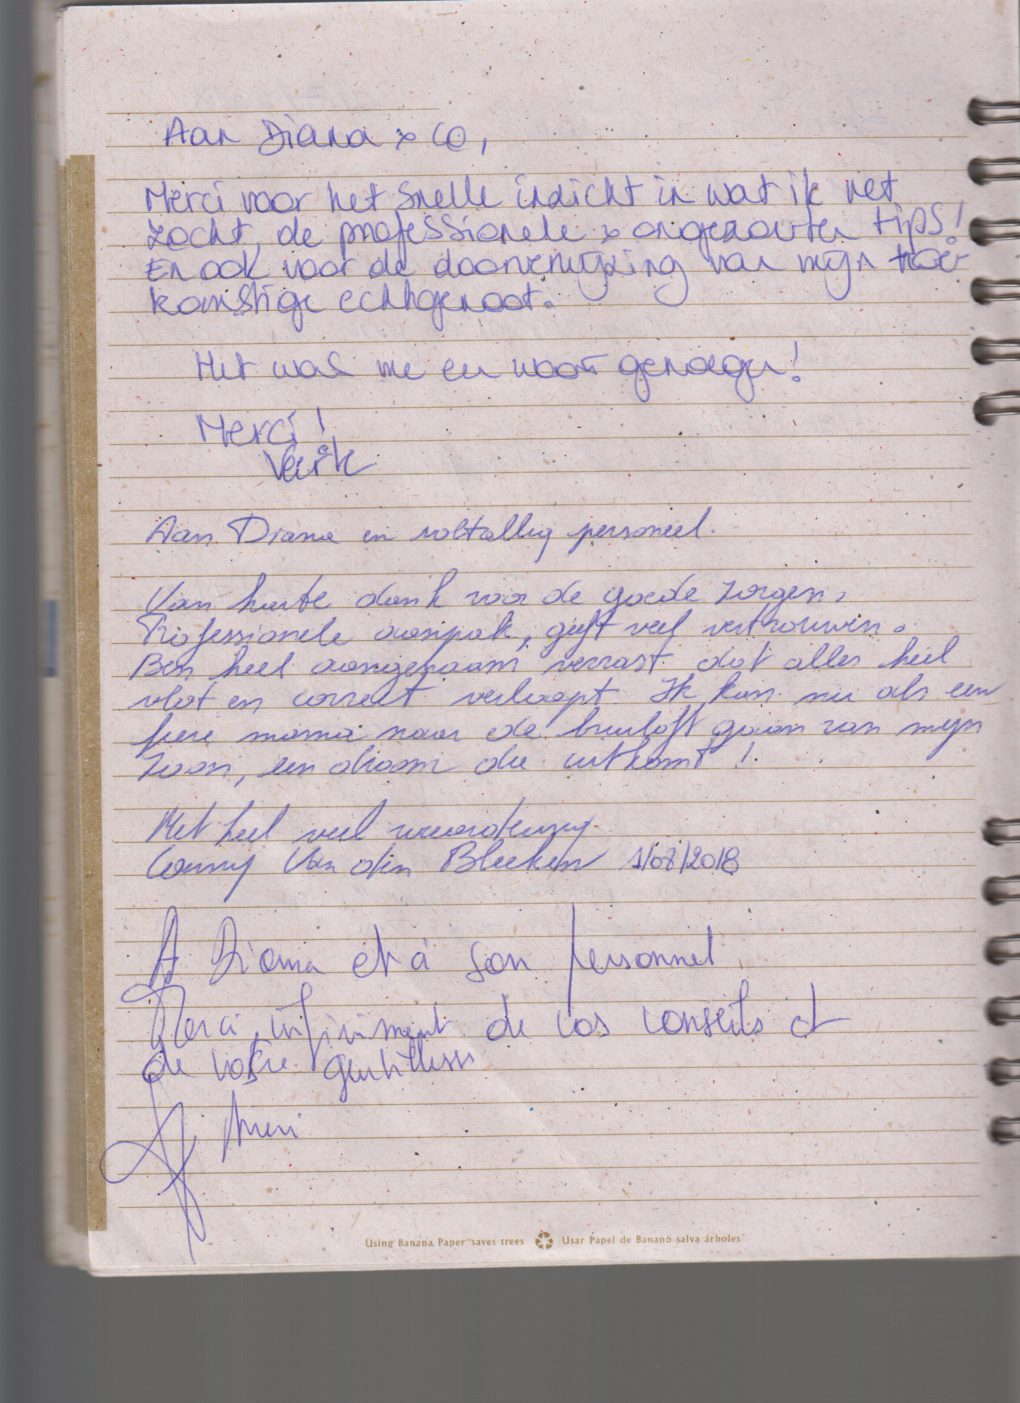 Aan Diana & Co,
Merci voor het snelle indicht in wat ik net
zocht, de professionele & ongezouten tips!
En ook voor de doorverwijzing van mijn toe
komstige echtgenoot.
Het was me een waar genoegen!
Merci!
Aan Diana en voltallig personeel.
Van harte dank voor de goede zorgen.
Professionele aanpak, geeft veel vertrouwen.
Ben heel aangenaam verrast dat alles heel
vlot en correct verloopt. Ik kan nu als een
fiere mama naar de bruiloft gaan van mijn
zoon, een droom die uitkomt!
Met heel veel waardering
Conny Van den Bleeken 1/08/2018
A Diana et à son personnel
Merci infiniment de vos conseils et
de votre gentillesse
Using Banana Paper saves trees Usar Papel de Banano salva árboles